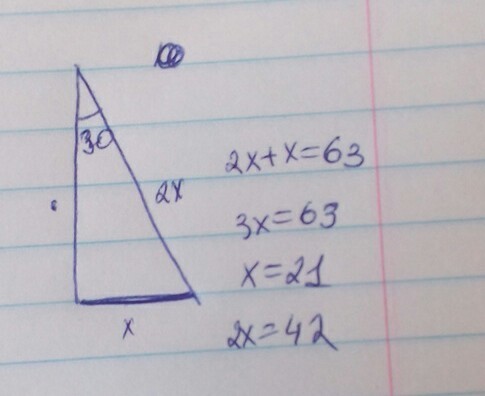 30
2x
x
2x+x=63
3x=63
x=21
2x=42